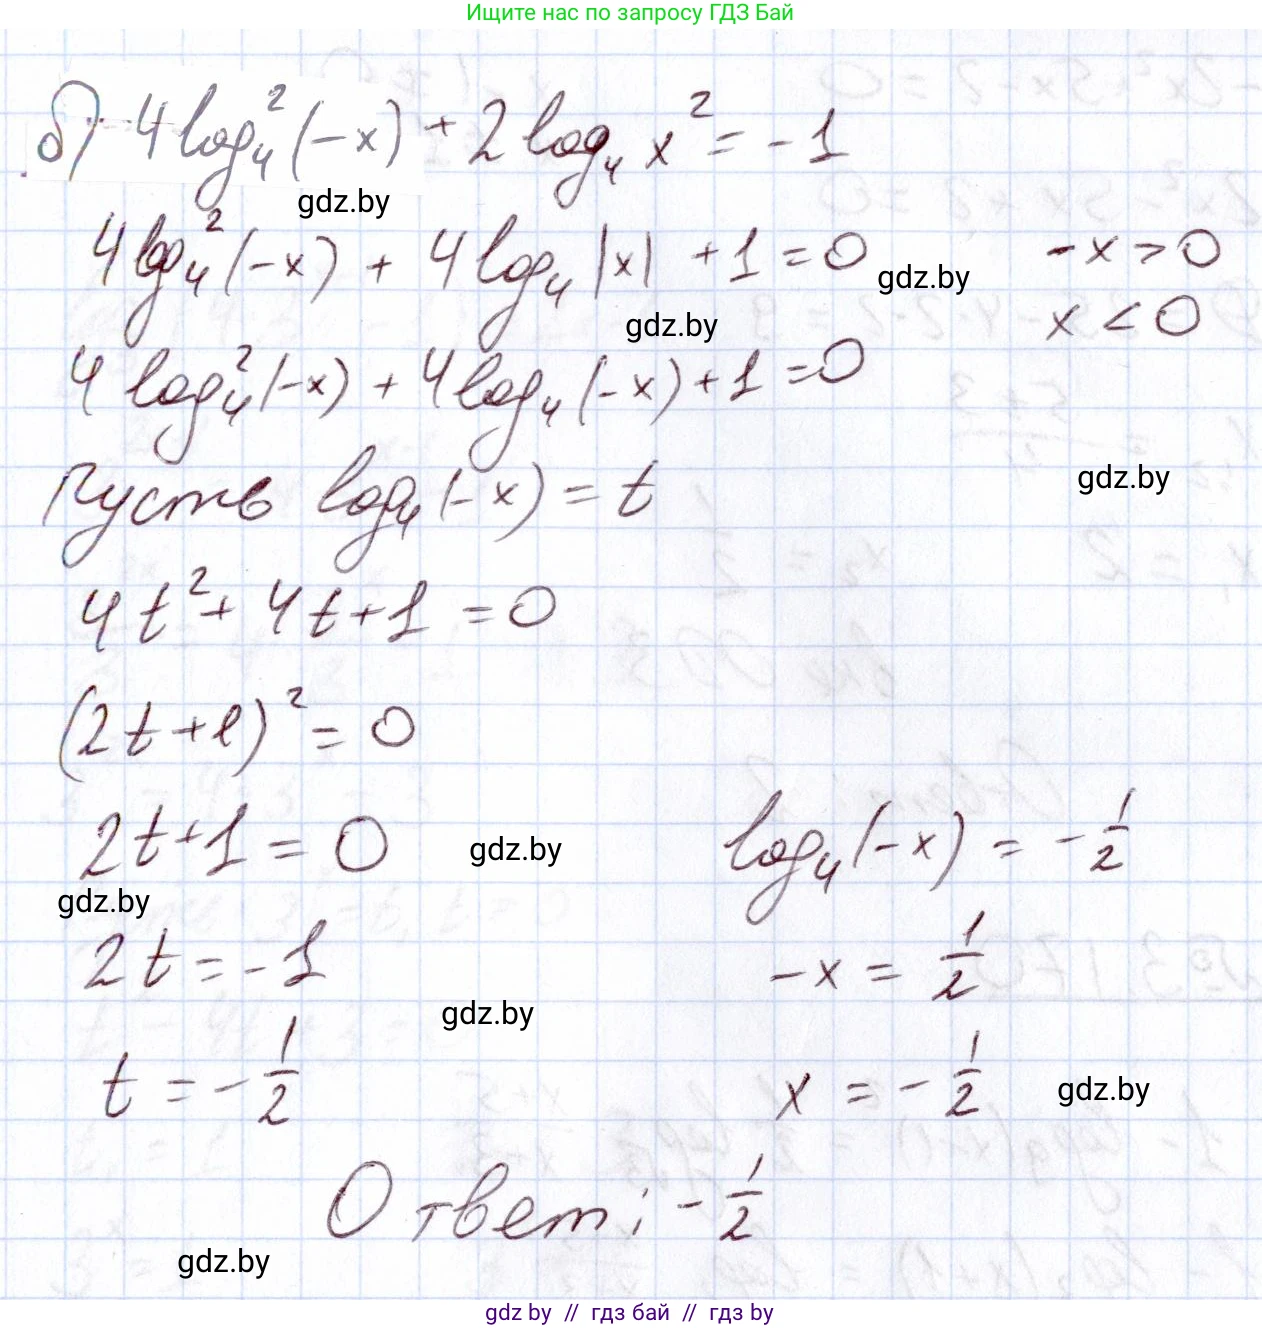 Ищите нас по запросу ГДЗ Бай
б) 4log₄²(-x) + 2log₄x² = -1
gdz.by
4log₄²(-x) + 4log₄|x| + 1 = 0 -x > 0
gdz.by
gdz.by x < 0
4log₄²(-x) + 4log₄(-x) + 1 = 0
Пусть log₄(-x) = t gdz.by
4t² + 4t + 1 = 0
(2t+1)² = 0
2t+1 = 0 gdz.by log₄(-x) = -1/2
gdz.by
2t = -1 -x = 1/2
gdz.by
t = -1/2 x = -1/2 gdz.by
Ответ: -1/2
gdz.by
gdz.by // гдз бай // гдз by